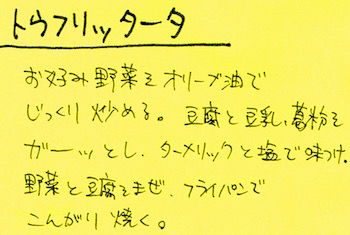 トウフリッタータ
お好み野菜をオリーブ油で
じっくり炒める。豆腐と豆乳、葛粉を
ガーーッとし、ターメリックと塩で味つけ。
野菜と豆腐をまぜ、フライパンで
こんがり焼く。